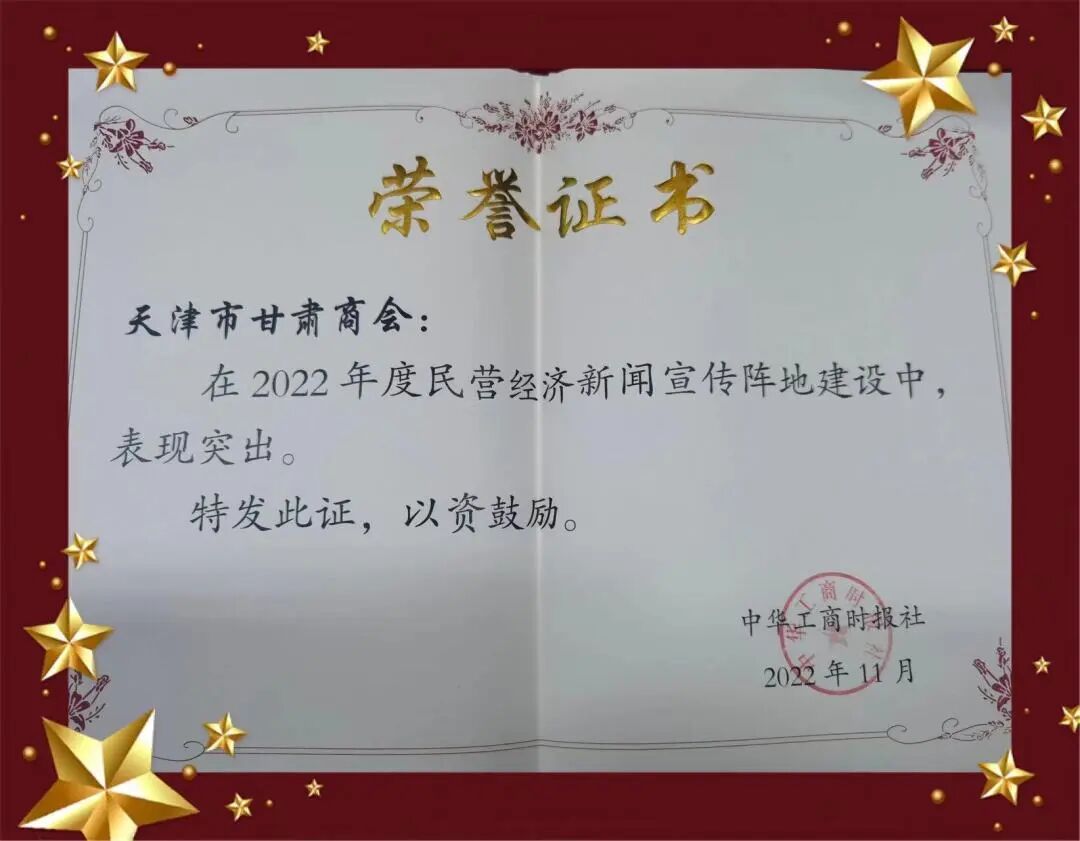 荣誉证书
天津市甘肃商会：
在2022年度民营经济新闻宣传阵地建设中，
表现突出。
特发此证，以资鼓励。
中华工商时报社
2022年11月